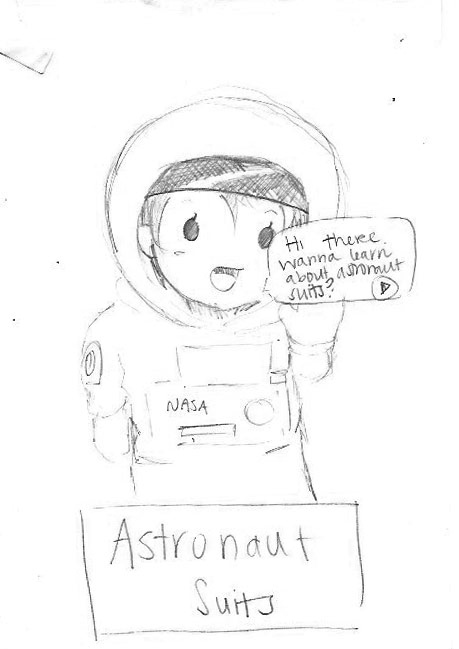 Hi there.
wanna learn
about astronaut
suits?
NASA
Astronaut
Suits